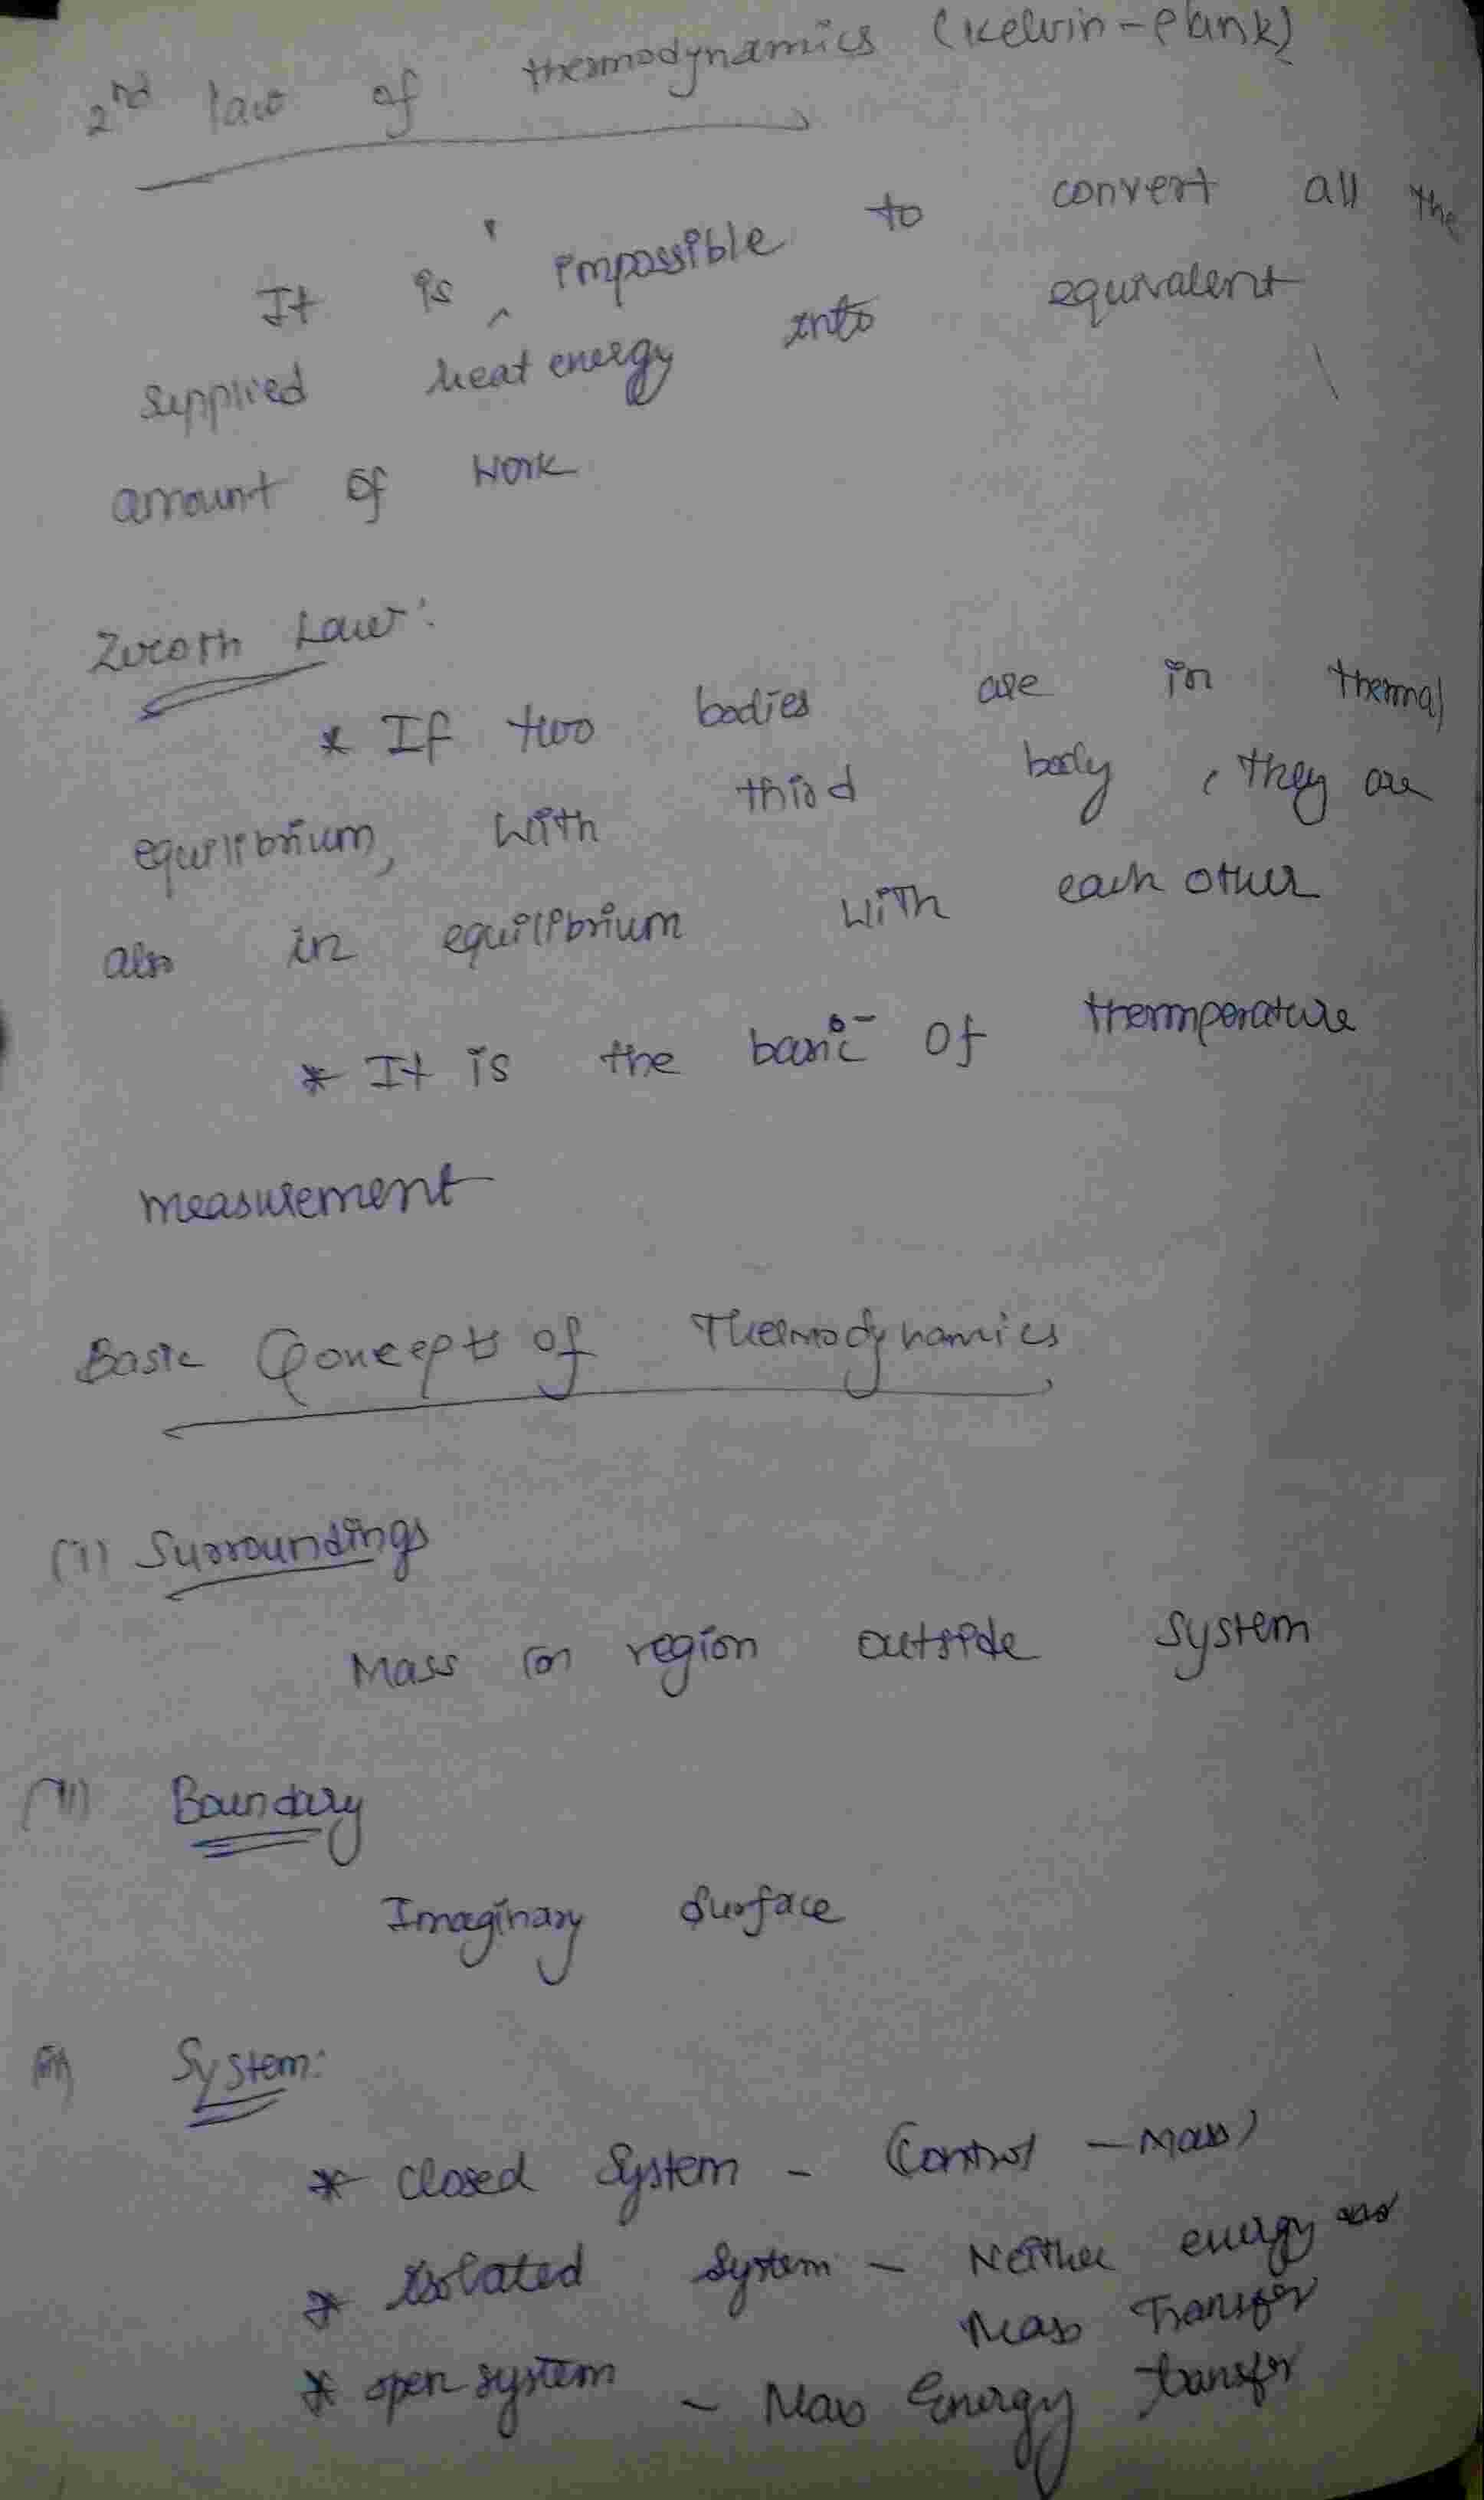 2nd law of thermodynamics (Kelvin-Plank)
It is impossible to convert all the
supplied heat energy into equivalent
amount of work
Zeroth Law:
* If two bodies are in thermal
equilibrium, with third body, they are
also in equilibrium with each other
* It is the basic of themperature
measurement
Basic Concepts of Thermodynamics
(i) Surroundings
Mass (or) region outside system
(ii) Boundary
Imaginary Surface
(iii) System:
* Closed System - (Control - Mass)
* Isolated System - Neither energy
Mass Transfer
* open system - Mass Energy transfer